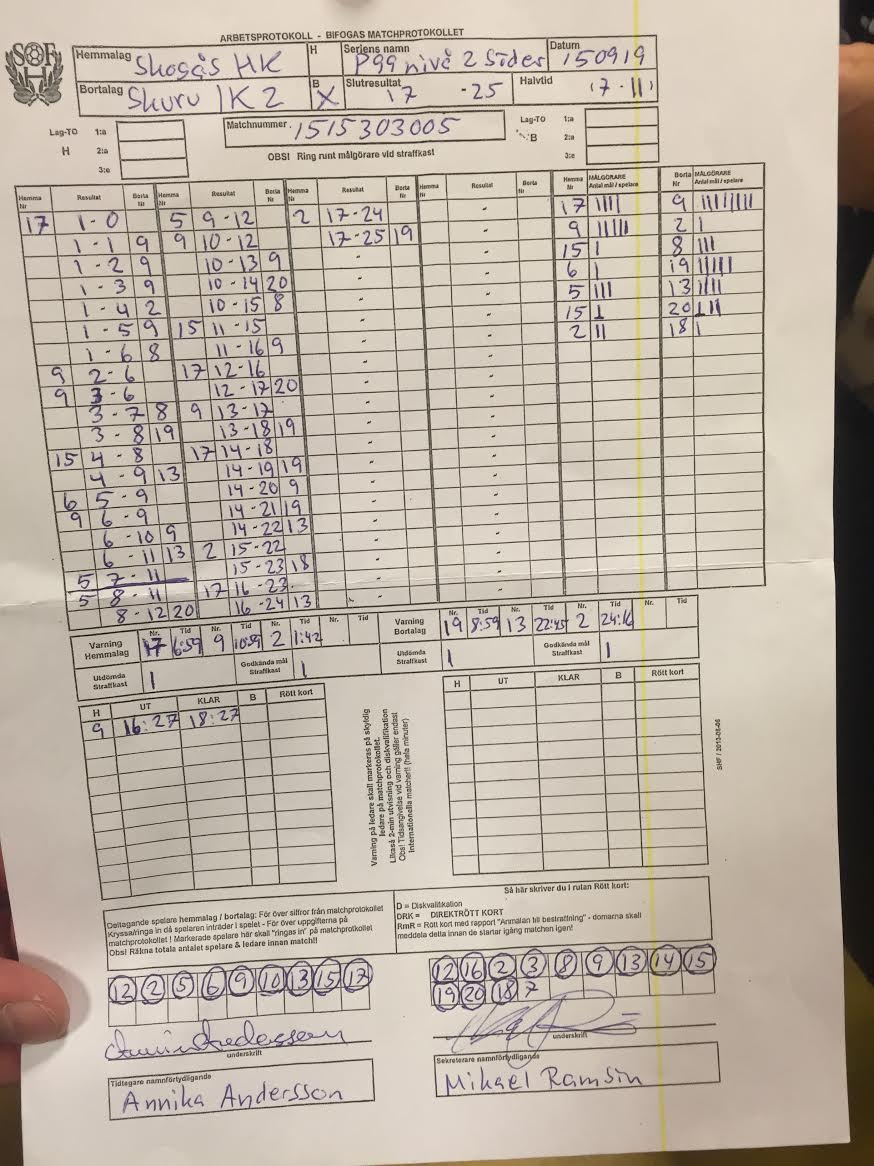 ARBETSPROTOKOLL - BIFOGAS MATCHPROTOKOLLET
SOF
H
Hemmalag Skogås HK H Seriens namn P99 nivå 2 Söder Datum 150919
Bortalag Skuru IK 2 B X Slutresultat 17 - 25 Halvtid (7-11)
Lag-TO 1:a Matchnummer 1515303005 Lag-TO 1:a
H 2:a B 2:a
3:e OBS! Ring runt målgörare vid straffkast 3:e
Hemma Nr Resultat Borta Nr Hemma Nr Resultat Borta Nr Hemma Nr Resultat Borta Nr Hemma Nr Resultat Borta Nr Hemma Nr MÅLGÖRARE Antal mål / spelare Borta Nr MÅLGÖRARE Antal mål / spelare
17 1-0 5 9-12 2 17-24 - 17 |||| 9 ||||||||
1-1 9 9 10-12 17-25 19 - 9 ||||| 2 |
1-2 9 10-13 9 - - 15 | 8 |||
1-3 9 10-14 20 - - 6 | 19 |||||
1-4 2 10-15 8 - - 5 ||| 13 ||||
1-5 9 15 11-15 - - 15 | 20 |||
1-6 8 11-16 9 - - 2 || 18 |
9 2-6 17 12-16 - -
9 3-6 12-17 20 - -
3-7 8 9 13-17 - -
3-8 19 13-18 19 - -
15 4-8 17 14-18 - -
4-9 13 14-19 19 - -
6 5-9 14-20 9 - -
9 6-9 14-21 19 - -
6-10 9 14-22 13 - -
6-11 13 2 15-22 - -
5 7-11 15-23 18 - -
5 8-11 17 16-23 - -
8-12 20 16-24 13 - -
Varning Hemmalag Nr. Tid Nr. Tid Nr. Tid Nr. Tid Varning Bortalag Nr. Tid Nr. Tid Nr. Tid Nr. Tid
17 6:59 9 10:59 2 1:42 19 8:59 13 22:45 2 24:16
Utdömda Straffkast 1 Godkända mål Straffkast 1 Utdömda Straffkast 1 Godkända mål Straffkast 1
H UT KLAR B Rött kort H UT KLAR B Rött kort
9 16:27 18:27
Varning på ledare skall markeras på skyldig
ledare på matchprotokollet.
Likaså 2-min utvisning och diskvalifikation
Obs! Tidsangivelse vid varning gäller endast
Internationella matcher!! (hela minuter)
SHF / 2013-06-06
Deltagande spelare hemmalag / bortalag: För över siffror från matchprotokollet
Kryssa/ringa in då spelaren inträder i spelet - För över uppgifterna på
matchprotokollet ! Markerade spelare här skall "ringas in" på matchprotkollet
Obs! Räkna totala antalet spelare & ledare innan match!!
Så här skriver du i rutan Rött kort:
D = Diskvalifikation
DRK = DIREKTRÖTT KORT
RmR = Rött kort med rapport "Anmälan till bestraffning" - domarna skall
meddela detta innan de startar igång matchen igen!
12 2 5 6 9 10 13 15 17
12 16 2 3 8 9 13 14 15
19 20 18 7
underskrift
underskrift
Tidtagare namnförtydligande
Annika Andersson
Sekreterare namnförtydligande
Mikael Ramsin